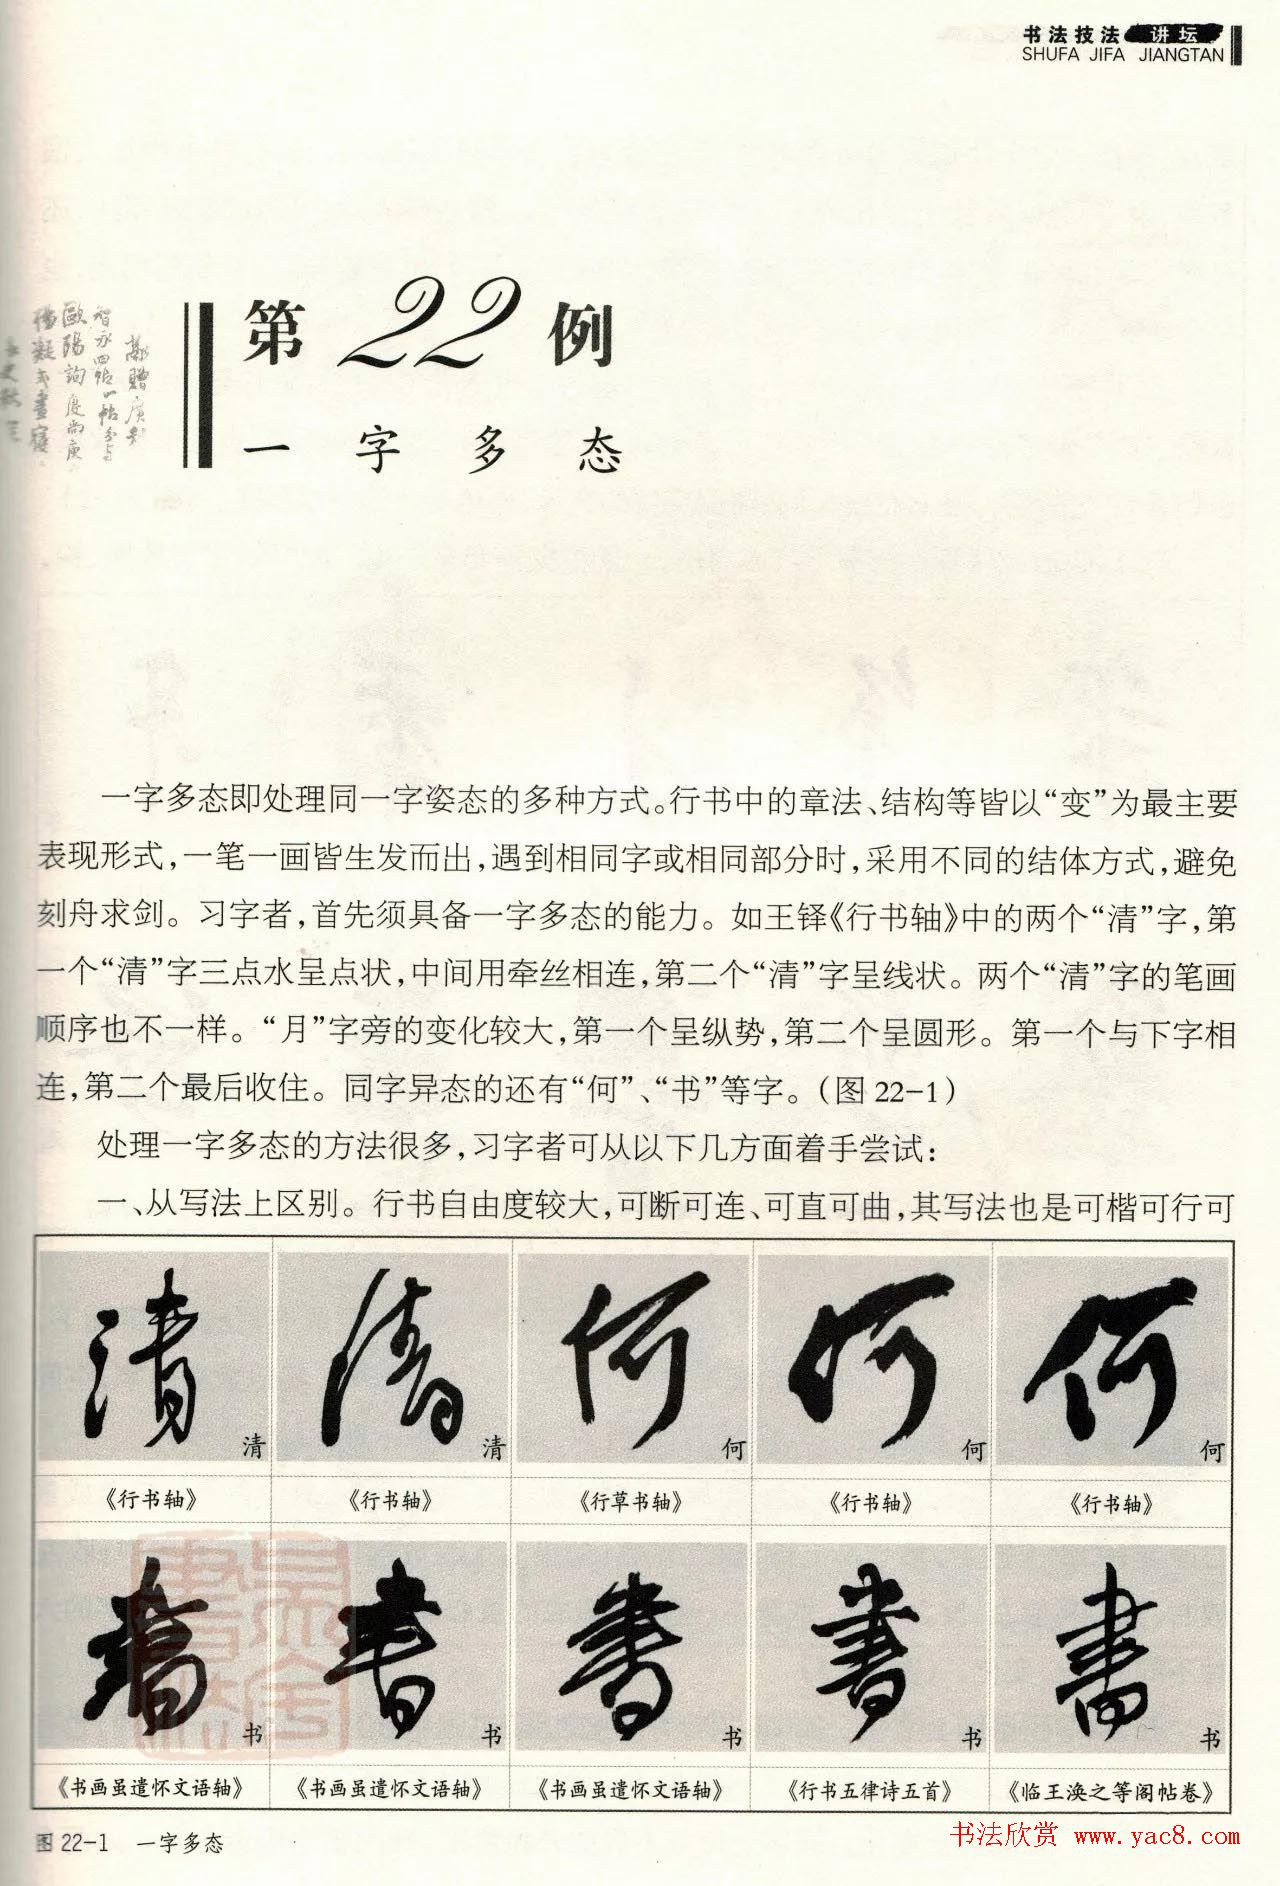 书法技法 讲坛
SHUFA JIFA JIANGTAN
第22例
一字多态
一字多态即处理同一字姿态的多种方式。行书中的章法、结构等皆以“变”为最主要
表现形式，一笔一画皆生发而出，遇到相同字或相同部分时，采用不同的结体方式，避免
刻舟求剑。习字者，首先须具备一字多态的能力。如王铎《行书轴》中的两个“清”字，第
一个“清”字三点水呈点状，中间用牵丝相连，第二个“清”字呈线状。两个“清”字的笔画
顺序也不一样。“月”字旁的变化较大，第一个呈纵势，第二个呈圆形。第一个与下字相
连，第二个最后收住。同字异态的还有“何”、“书”等字。（图22-1）
处理一字多态的方法很多，习字者可从以下几方面着手尝试：
一、从写法上区别。行书自由度较大，可断可连、可直可曲，其写法也是可楷可行可
清 清 何 何 何
清 清 何 何 何
《行书轴》 《行书轴》 《行草书轴》 《行书轴》 《行书轴》
書 書 書 書 書
书 书 书 书 书
《书画虽遣怀文语轴》 《书画虽遣怀文语轴》 《书画虽遣怀文语轴》 《行书五律诗五首》 《临王涣之等阁帖卷》
图22-1 一字多态
书法欣赏 www.yac8.com